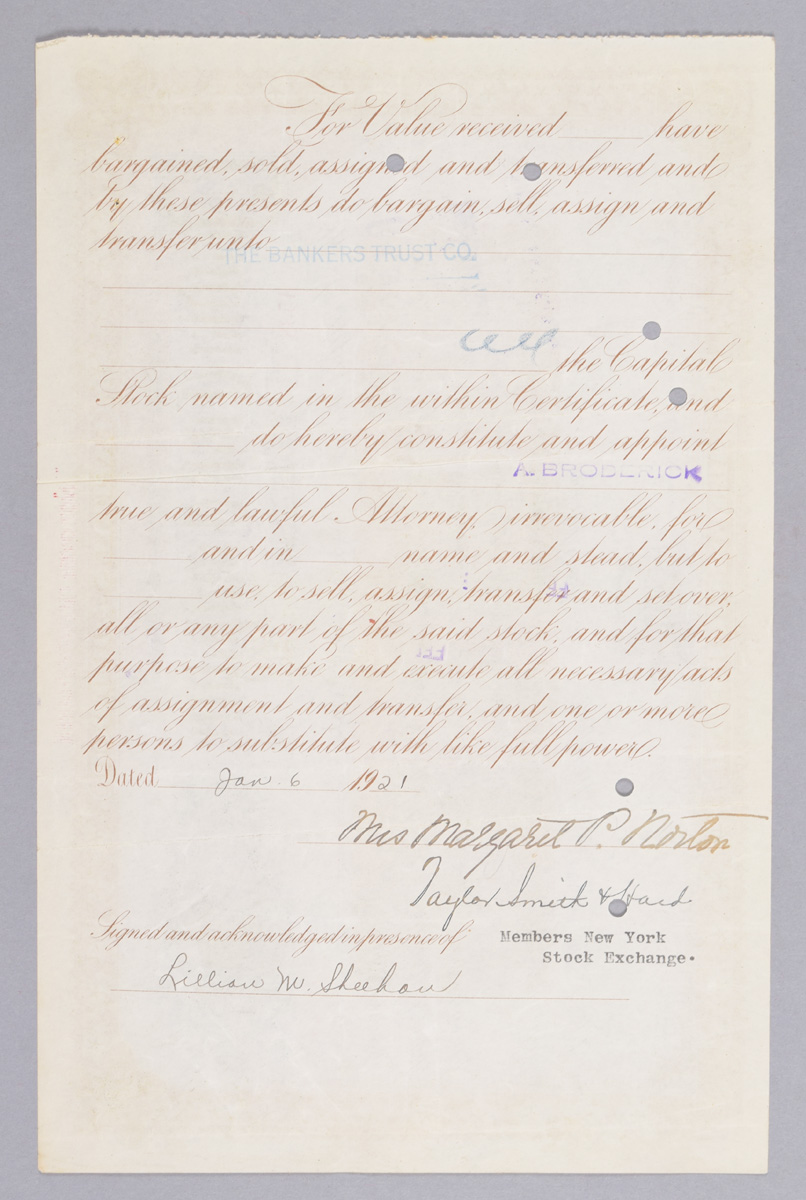 For Value received have
bargained, sold, assigned and transferred and
by these presents do bargain, sell, assign and
transfer unto
THE BANKERS TRUST CO.
all the Capital
Stock named in the within Certificate, and
do hereby constitute and appoint
A. BRODERICK
true and lawful Attorney, irrevocable, for
and in name and stead, but to
use, to sell, assign, transfer and set over,
all or any part of the said stock, and for that
purpose to make and execute all necessary acts
of assignment and transfer, and one or more
persons to substitute with like full power.
Dated Jan. 6 1921
Mrs Margaret P. Norton
Taylor Smith & Hard
Signed and acknowledged in presence of
Members New York
Stock Exchange.
Lillian M. Sheehan